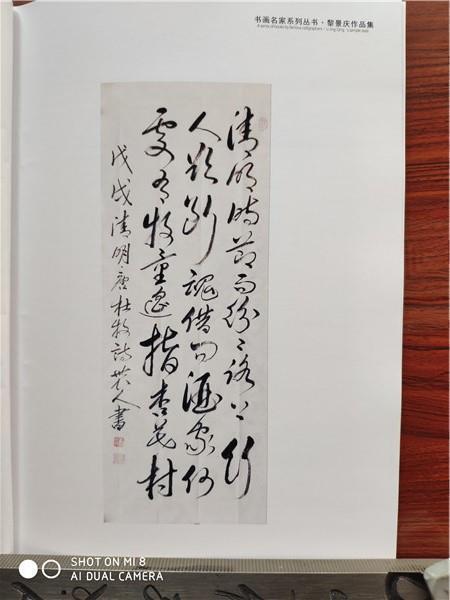 书画名家系列丛书·黎景庆作品集
A series of books by famous calligraphers
清明時節雨紛々路上行
人欲断魂借问酒家何
處有牧童遥指杏花村
戊戌清明唐杜牧詩農人書
SHOT ON MI 8
AI DUAL CAMERA